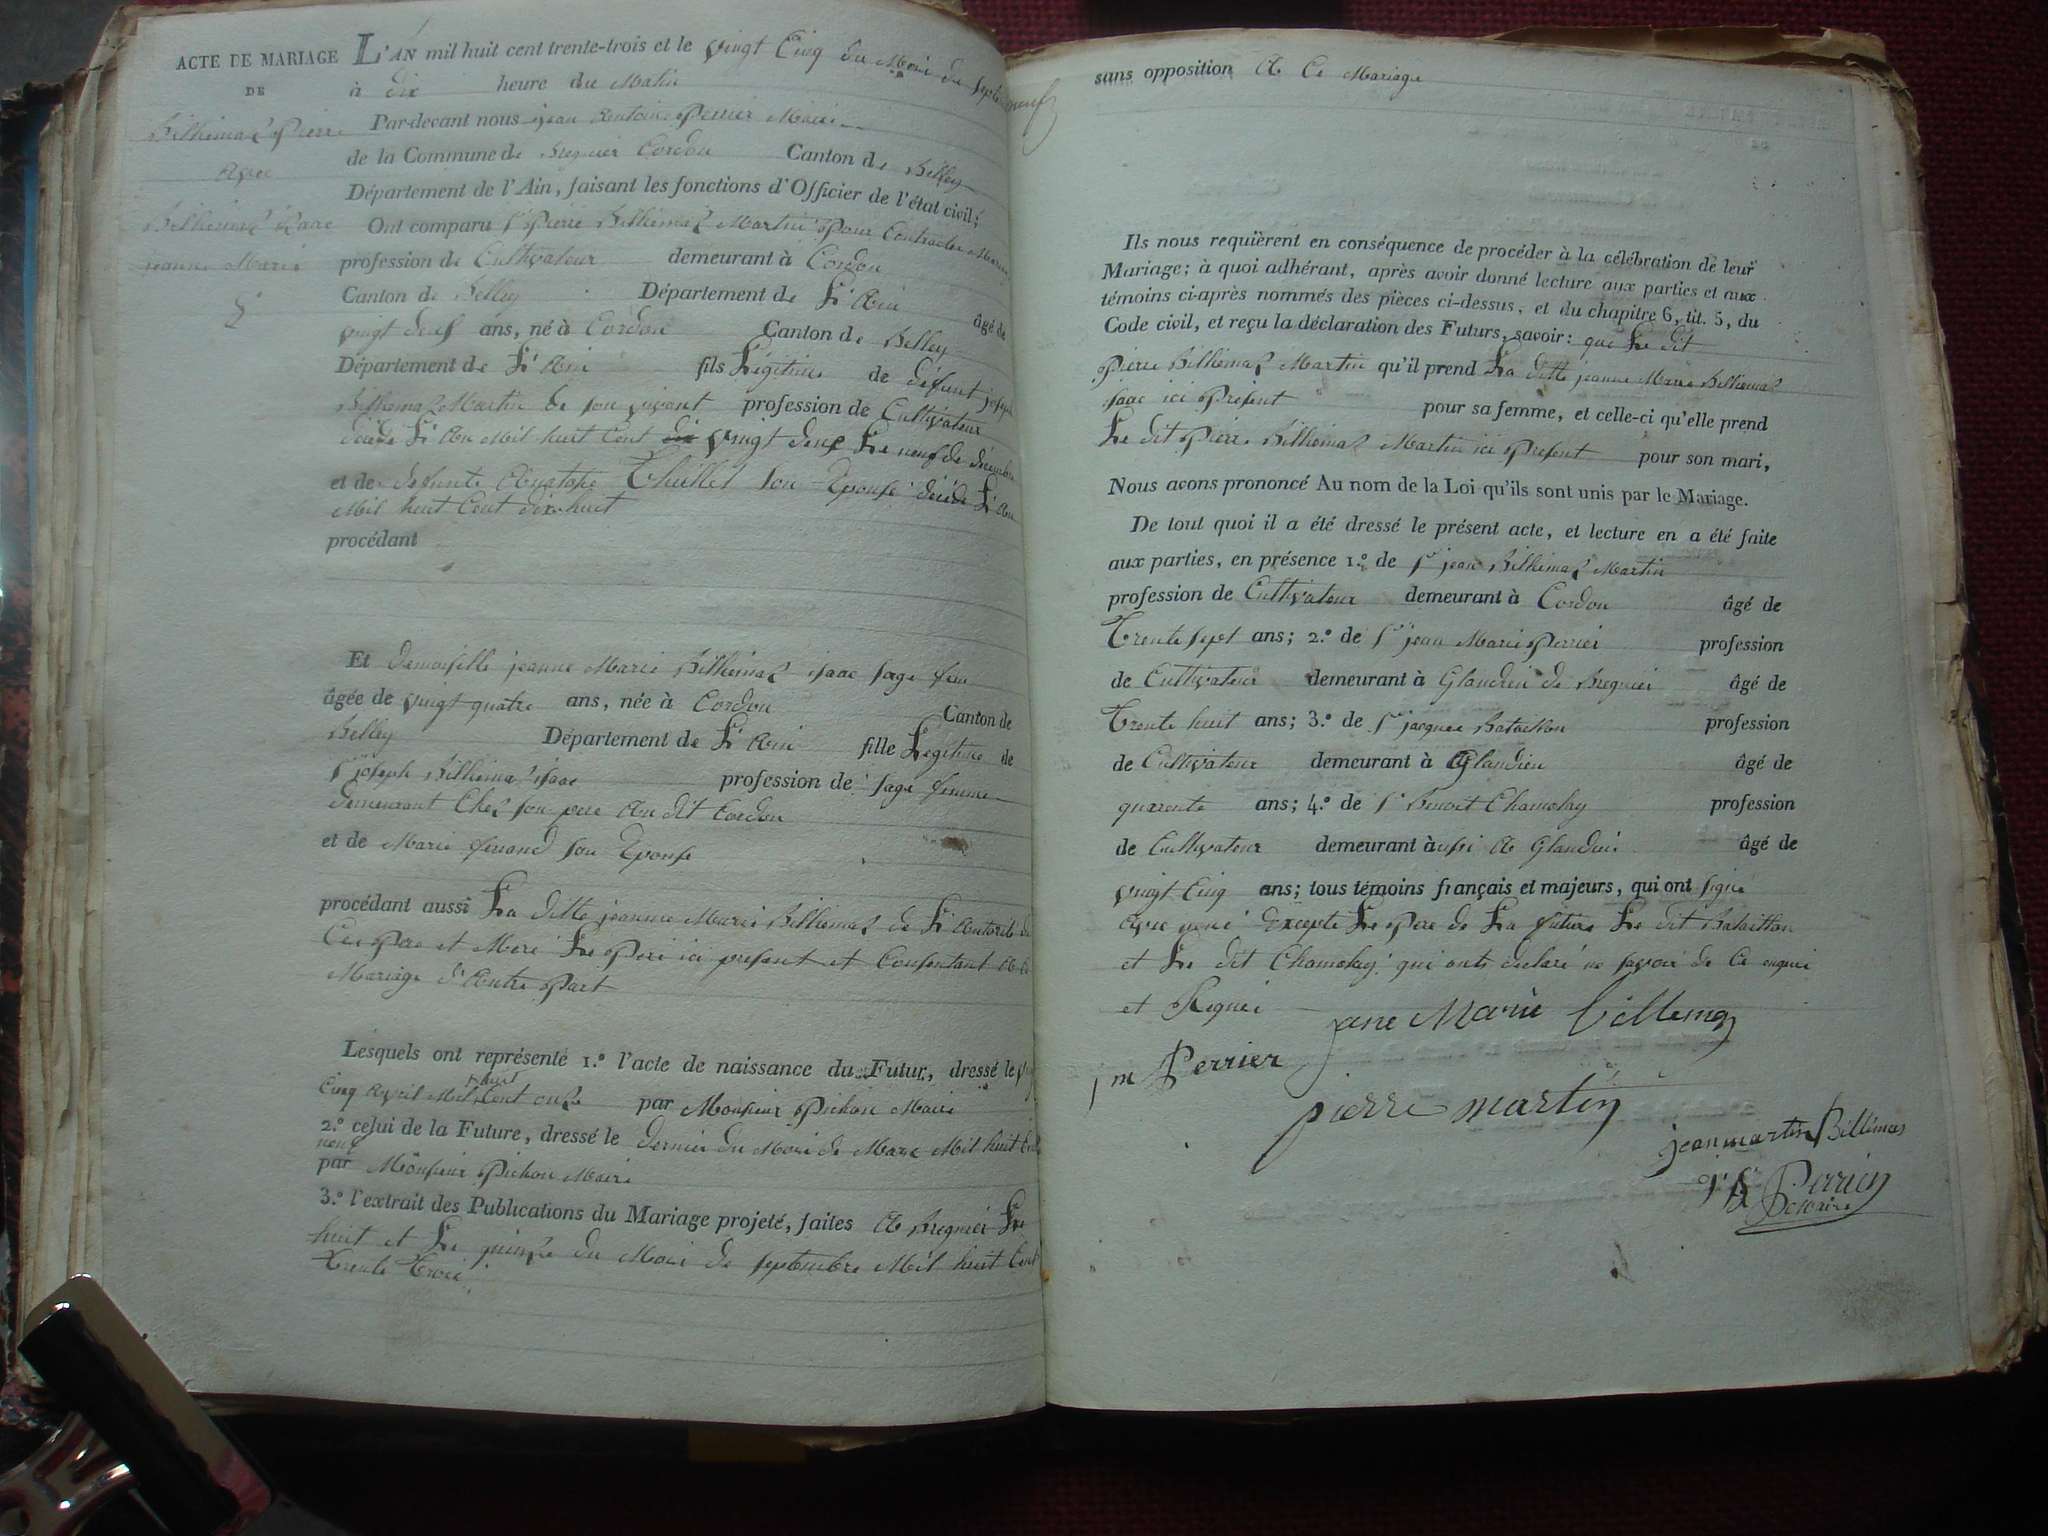 ACTE DE MARIAGE
DE
Billiemaz Pierre
Avec
Billiemaz isaac
jeanne Marie
L'AN mil huit cent trente-trois et le vingt Cinq du Moi de septembre
à dix heure du Matin
Par-devant nous jean Antoine Perrier Maire
de la Commune de Bregnier Cordon Canton de Belley
Département de l'Ain, faisant les fonctions d'Officier de l'état civil;
Ont comparu Sr Pierre Billiemaz Martin Pour Contracter Mariage
profession de Cultivateur demeurant à Cordon
Canton de Belley Département de L'Ain âgé de
vingt deux ans, né à Cordon Canton de Belley
Département de L'Ain fils Légitime de défunt joseph
Billiemaz Martin de son vivant profession de Cultivateur
décédé L'An Mil huit Cent vingt deux Le neuf de décembre
et de defunte Thillet son Epouse décédé L'An
Mil huit Cent dix huit
procédant
Et demoiselle jeanne Marie Billiemaz isaac sage fem
âgée de vingt quatre ans, née à Cordon Canton de
Belley Département de L'Ain fille Légitime de
Sr joseph Billiemaz isaac profession de sage femme
demeurant Chez son père Au dit Cordon
et de Marie son Epouse
procédant aussi La ditte jeanne Marie Billiemaz de L'Autorité de
Ces Père et Mère Le Père ici présent et Consentant A Ce
Mariage d'Autre Part
Lesquels ont représenté 1.º l'acte de naissance du Futur, dressé le
Cinq Avril Mil huit Cent onze par Monsieur Pichon Maire
2.º celui de la Future, dressé le dernier du Moi de Mars Mil huit Cent
neuf
par Monsieur Pichon Maire
3.º l'extrait des Publications du Mariage projeté, faites A Bregnier Le
huit et Le quinze du Moi de septembre Mil huit Cent
Trente Trois
sans opposition A Ce Mariage
Ils nous requièrent en conséquence de procéder à la célébration de leur
Mariage; à quoi adhérant, après avoir donné lecture aux parties et aux
témoins ci-après nommés des pièces ci-dessus, et du chapitre 6, tit. 5, du
Code civil, et reçu la déclaration des Futurs, savoir: que Le dit
Pierre Billiemaz Martin qu'il prend La ditte jeanne Marie Billiemaz
isaac ici Présent pour sa femme, et celle-ci qu'elle prend
Le dit Pierre Billiemaz Martin ici Présent pour son mari,
Nous avons prononcé Au nom de la Loi qu'ils sont unis par le Mariage.
De tout quoi il a été dressé le présent acte, et lecture en a été faite
aux parties, en présence 1.º de Sr jean Billiemaz Martin
profession de Cultivateur demeurant à Cordon âgé de
Trente sept ans; 2.º de Sr jean Marie Perrier profession
de Cultivateur demeurant à Glandieu de Bregnier âgé de
Trente huit ans; 3.º de Sr jacques Bataillon profession
de Cultivateur demeurant à Glandieu âgé de
quarente ans; 4.º de Sr Benoit Chamolay profession
de Cultivateur demeurant à ussi A Glandieu âgé de
vingt Cinq ans; tous témoins français et majeurs, qui ont signé
Avec nous Excepté Le Père de La future Le dit Bataillon
et Le dit Chamolay qui ont déclaré ne savoir de Ce enquis
et Requis
jane Marie billemaz
jm Perrier
pierre martin
jean martin Billimas
Perrier